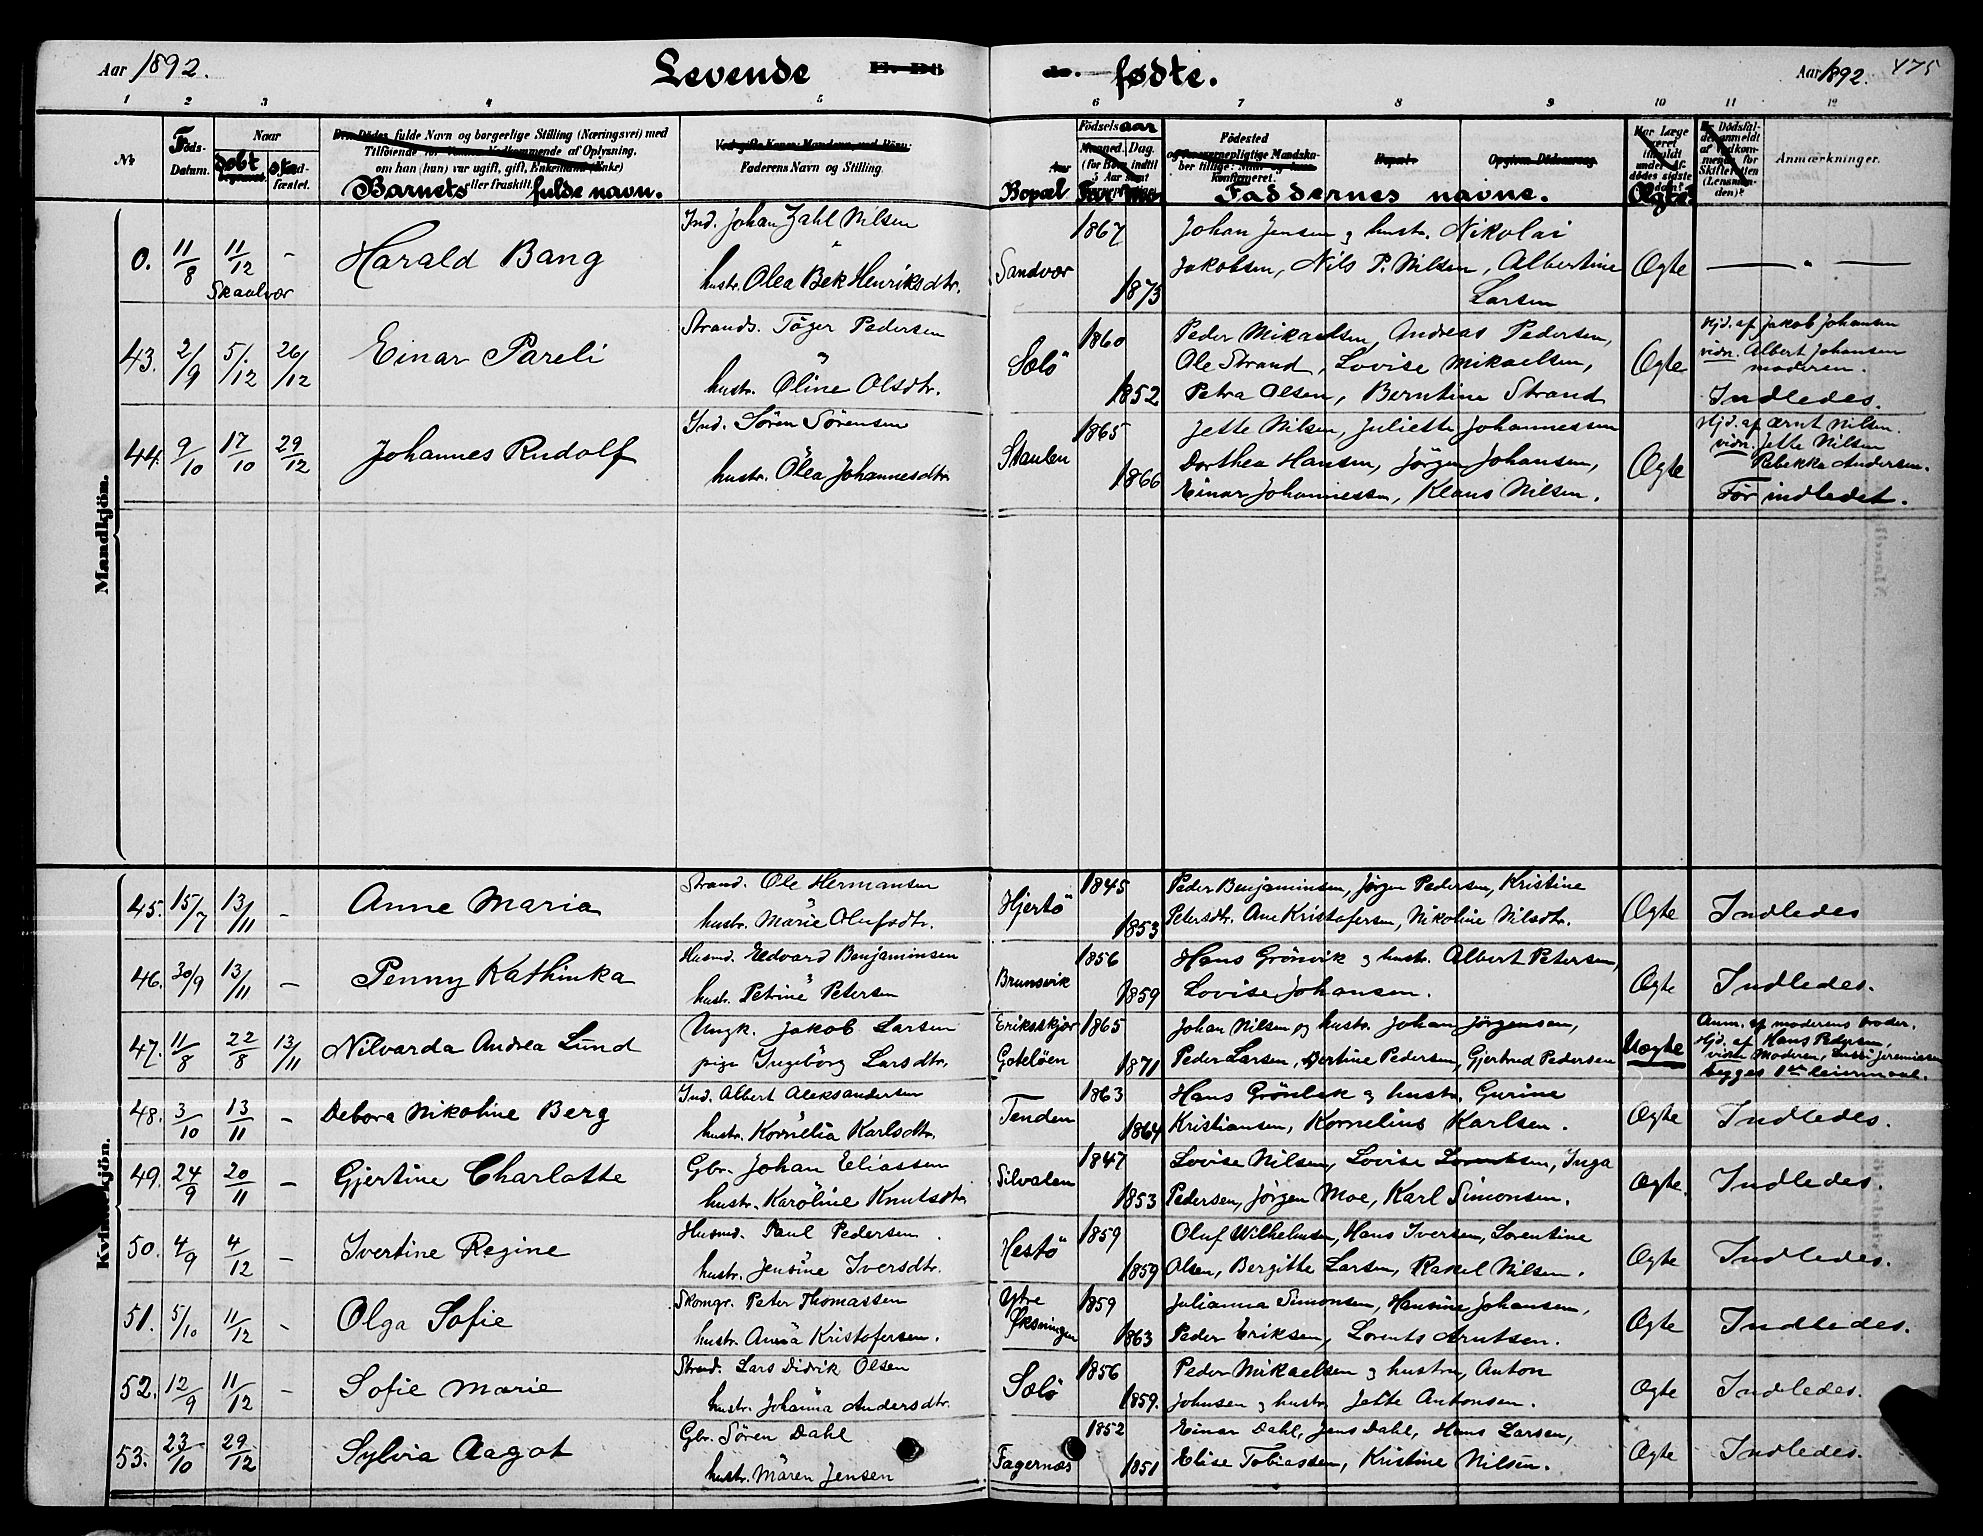 Aar 1892. Levende fødte. Aar 1892. 475
1 2 3 4 5 6 7 8 9 10 11 12
No Føds- Datum. Naar døbt stadfæstet.
Den Dødes fulde Navn og borgerlige Stilling (Næringsvei) med
Tilføiende for Voxnes Vedkommende af Oplysning,
om han (hun) var ugift, gift, Enkemand (Enke)
eller fraskilt.
Barnets fulde navn.
Ved gifte Koner: Mandens, ved Börn:
Faderens Navn og Stilling.
Bopæl Fødselsaar Far Mo
Födested
Faddernes navne.
Opgiven Dödsaarsag
Ægte
Anmærkninger.
Mandkjön.
0. 11/8 11/12 - Skaalvær Harald Bang
Ind. Johan Zahl Nilsen
hustr. Olea Bek Henriksdtr.
Sandvær 1867 1873
Johan Jensen og hustr. Nikolai
Jakobsen, Nils P. Nilsen, Albertine
Larsen
Ægte — " —
43. 2/9 5/12 26/12 Einar Pareli
Strands. Töger Pedersen
hustr. Oline Olsdtr.
Sælö 1860 1852
Peder Mikaelsen, Andreas Pedersen,
Ole Strand, Lovise Mikaelsen,
Petra Olsen, Berntine Strand
Ægte
Hjd. af Jakob Johansen
vidn. Albert Johansen
moderen.
Indledes.
44. 9/10 17/10 29/12 Johannes Rudolf
Ind. Sören Sörensen
hustr. Olea Johannesdtr.
Staulen 1865 1866
Jette Nilsen, Juliette Johannessen
Dorthea Hansen, Jörgen Johansen,
Einar Johannessen, Klaus Nilsen.
Ægte
Hjd. af Ærnt Nilsen.
vidn. Jette Nilsen
Rebekka Andersen.
Før indledet.
Kvindekjön.
45. 15/7 13/11 - Anne Maria
Strand. Ole Hermansen
hustr. Marie Olufsdtr.
Hjertö 1845 1853
Peder Benjaminsen, Jörgen Pedersen, Kristine
Petersdtr. Ane Kristofersen, Nikoline Nilsdtr.
Ægte Indledes
46. 30/9 13/11 - Penny Kathinka
Husmd. Edvard Benjaminsen
hustr. Petrine Petersen
Brunsvik 1856 1859
Hans Grönvik og hustr. Albert Petersen,
Lovise Johansen.
Ægte Indledes.
47. 11/8 22/8 13/11 Nilvarda Andrea Lund
Ungk. Jakob Larsen
pige Ingeborg Larsdtr.
Eriksskjær 1865
Goteløen 1871
Johan Nilsen og hustr. Johan Jörgensen,
Peder Larsen, Dortine Pedersen, Gjertrud Pedersen
Uægte
Anm. af moderens broder.
Hjd. af Hans Pedersen,
vidn. Moderen, Jeremiassen
begges 1ste leiermaal.
48. 3/10 13/11 - Debora Nikoline Berg
Ind. Albert Aleksandersen
hustr. Kornelia Karlsdtr.
Tenden 1863 1864
Hans Grönbek og hustr. Gurine
Kristiansen, Kornelius Karlsen.
Ægte Indledes.
49. 24/9 20/11 - Gjertine Charlotte
Gbr. Johan Eliassen
hustr. Karoline Knutsdtr.
Silvalen 1847 1853
Lovise Nilsen, Lovise Lorentsen, Inga
Pedersen, Jörgen Moe, Karl Simonsen.
Ægte. Indledes.
50. 4/9 4/12 - Ivertine Regine
Husmd. Paul Pedersen
hustr. Jensine Iversdtr.
Hestö 1859 1859
Oluf Wilhelmsen, Hans Iversen, Lorentine
Olsen, Bergitte Larsen, Rakel Nilsen.
Ægte Indledes.
51. 5/10 11/12 - Olga Sofie
Skomgr. Peter Thomassen
hustr. Anna Kristofersen.
Ytre Øksningen 1859 1863
Julianna Simonsen, Hansine Johansen,
Peder Eriksen, Lorents Arntsen.
Ægte Indledes.
52. 12/9 11/12 - Sofie Marie
Strand. Lars Didrik Olsen
hustr. Johanna Andersdtr.
Sælö 1856 1859.
Peder Mikaelsen og hustru, Anton
Johnsen og hustr. Jette Antonsen.
Ægte Indledes.
53. 23/10 29/12 Sylvia Aagot
Gbr. Sören Dahl
hustr. Maren Jensen
Fagernæs 1852 1851
Einar Dahl, Jens Dahl, Hans Larsen,
Elise Tobiassen, Kristine Nilsen.
Ægte Indledes.